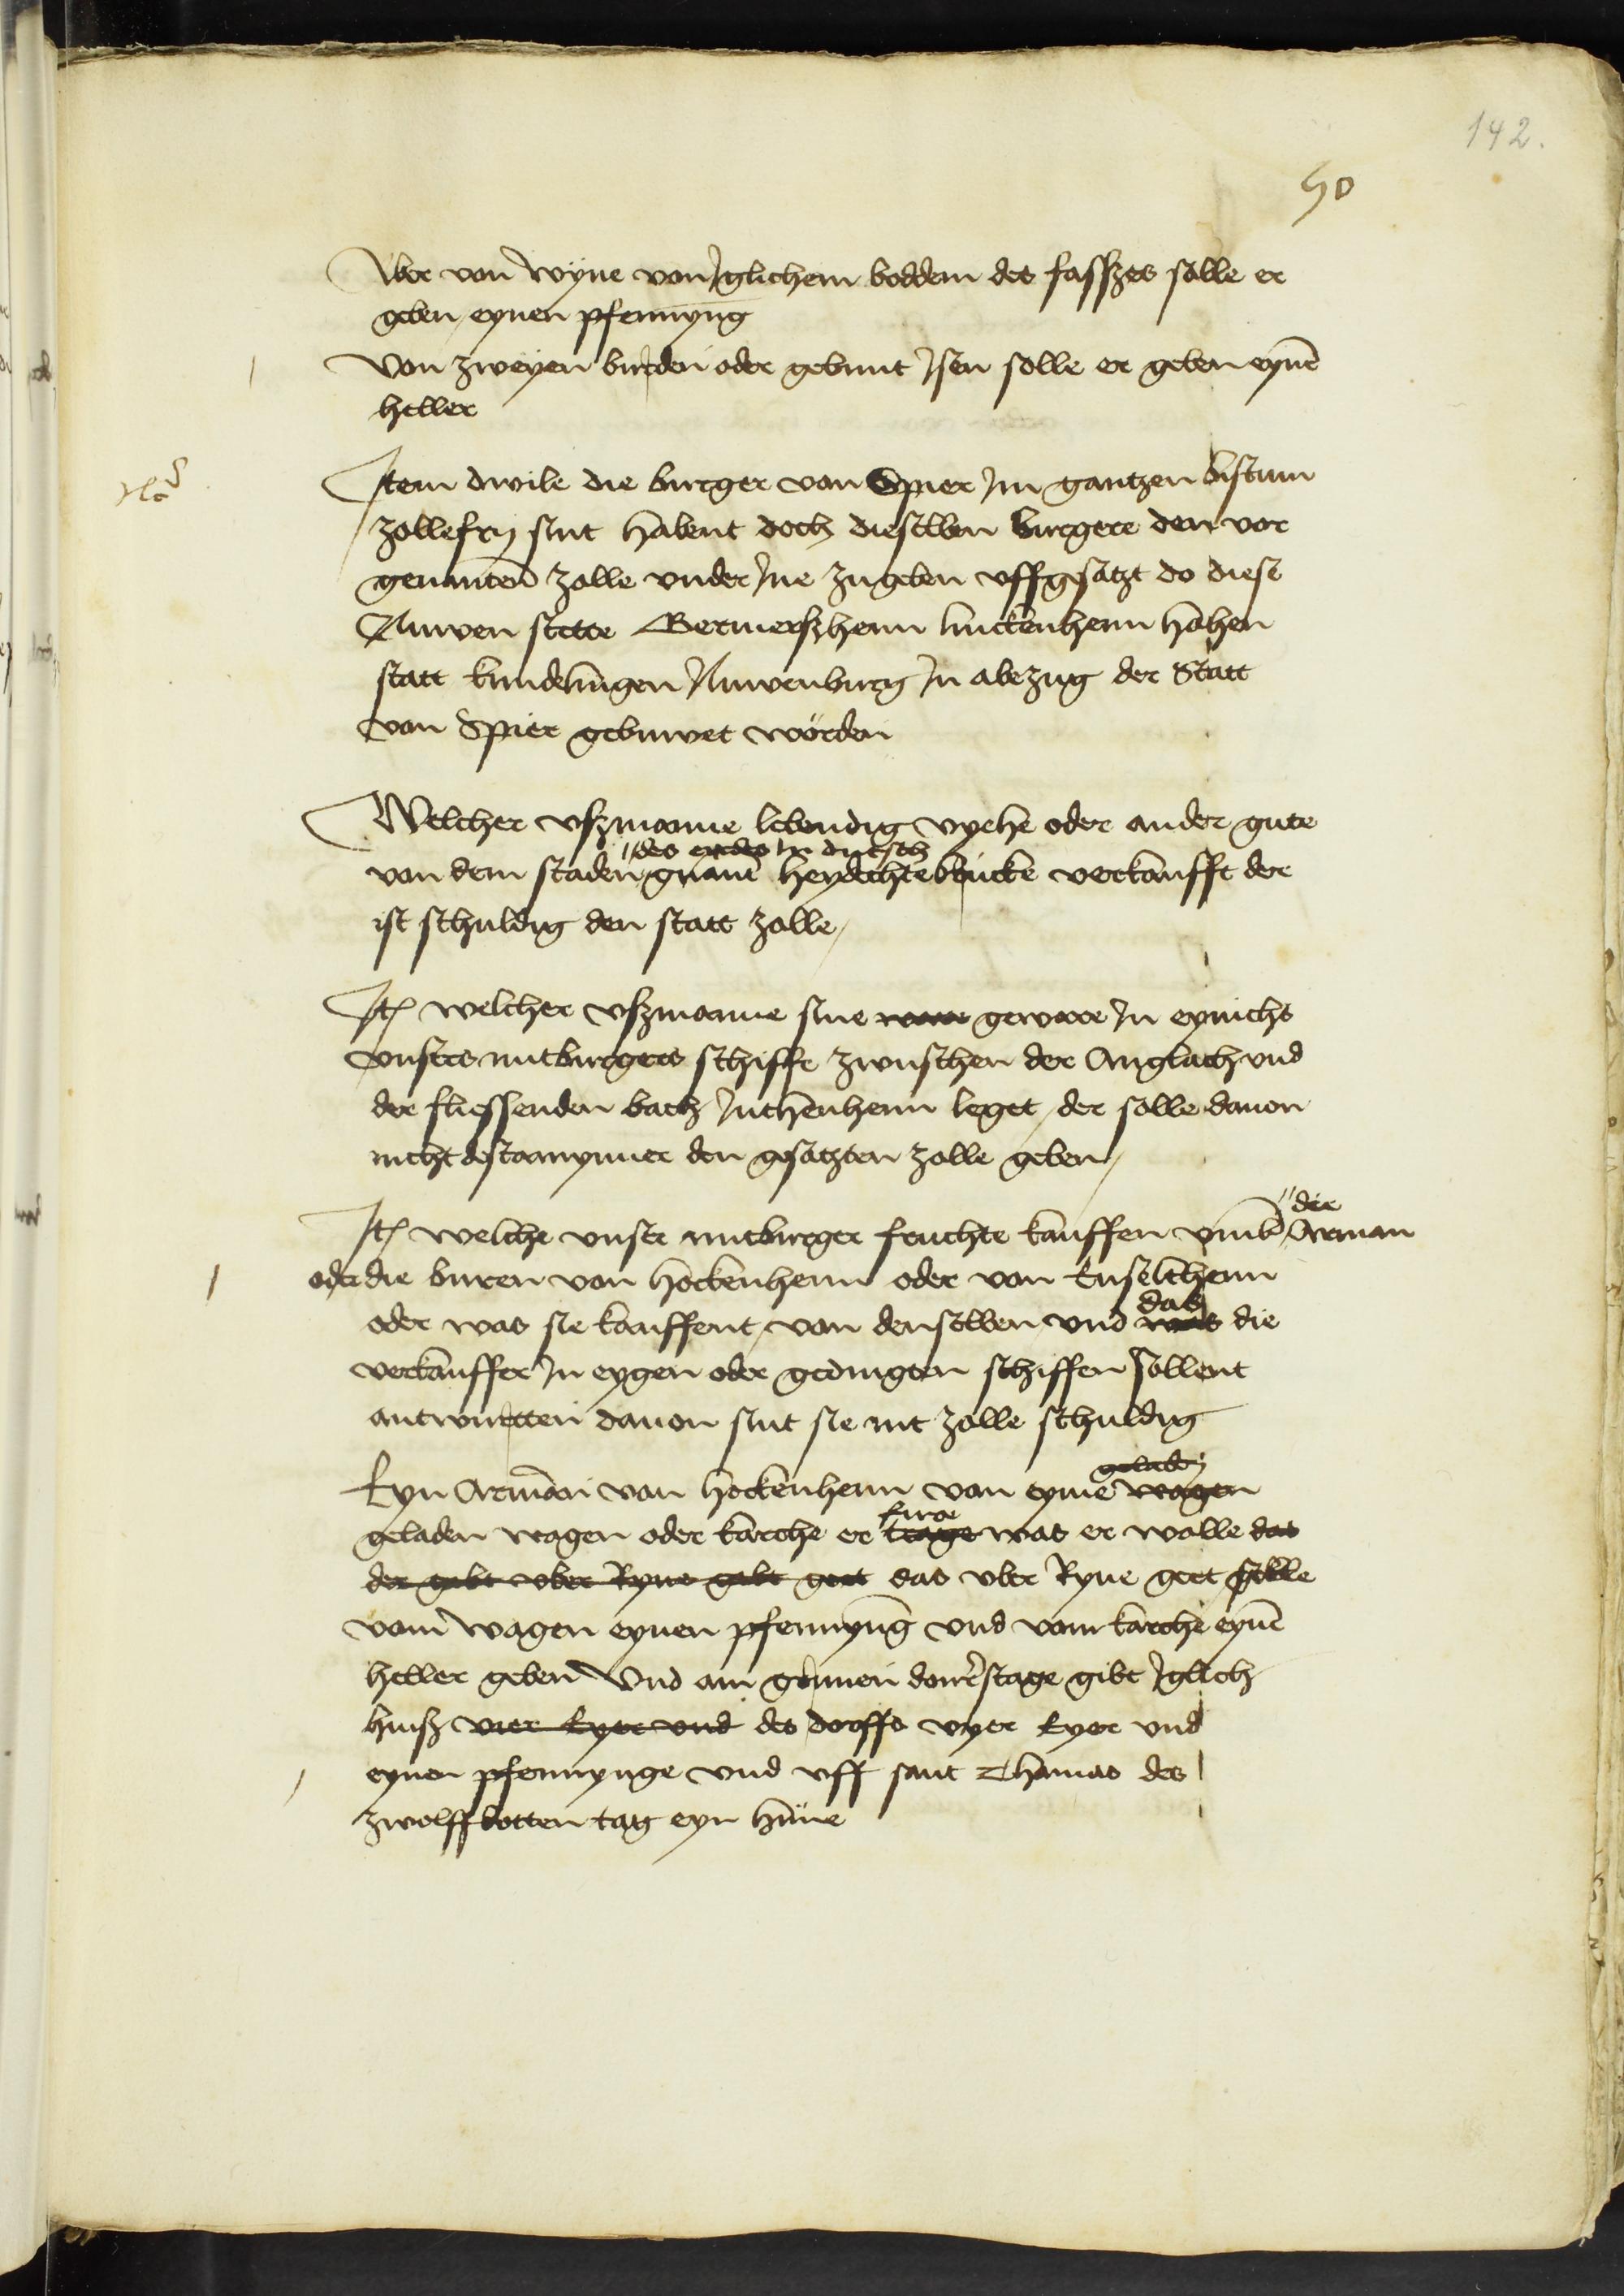 142.
50
Aber von wyne von Iglichem boddem des fasszes solle er
geben eynen pfennyng
Von zweyen burden oder gebunt Isen solle er geben eynē
heller
Item dwile die burger von Spier Im gantzen bistum
zollefry sint habent doch dieselben burgere den vor
genanten zolle vnder Ine zugeben vffgesatzt do diese
Nuwen stette Germerszheim Vdenheim Hohen
statt Nuwenburg In abezug der Statt
von Spier gebuwet worden
Welcher vszmanne lebendig vyehe oder ander gute
des endes In dutsch
von dem staden gnant Heydechtebrucke verkaufft der
ist schuldig den statt zolle
Itē welcher vszmanne sine ware geware In eynichs
vnsers mitburgers schiffe zwuschen der Anglach vnd
der fliessenden bach leget der solle dauon
nicht destamynner den gesatzten zolle geben
die
Itē welche vnser mitburger fruchte kauffen vmb Arman
oder die buren von Hockenheim oder von
das
oder was sie kauffent von denselben vnd was die
verkauffer In eygen oder gedingten schiffen sollent
antwurtten dauon sint sie nit zolle schuldig
geladen
Eyn Arman von Hockenheim von eyme wagen
fure
geladen wagen oder karche er trage was er wolle das
der gebt vber Ryne gebt geet das vber Ryne geet solle
vom wagen eynen pfennyng vnd vom karche eynē
heller geben Vnd am grunen donrestage gibt Iglich
husz vier Eyer vnd des dorffs vyer Eyer vnd
eynen pfennynge vnd vff sant Thomas des
zwolffbotten tag eyn hune